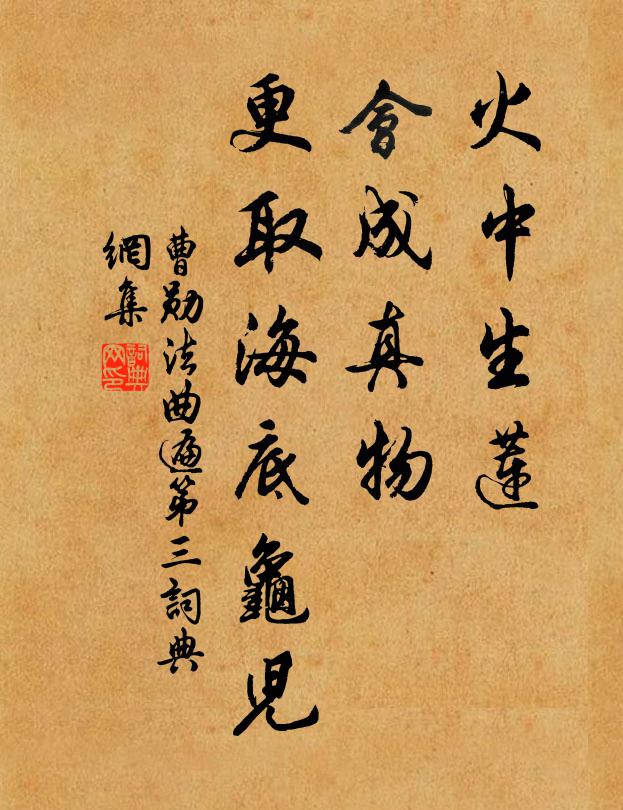 火中生蓮
會成真物
更取海底龜児
曹勛法曲遍第三詞典
網集
詞典
网印